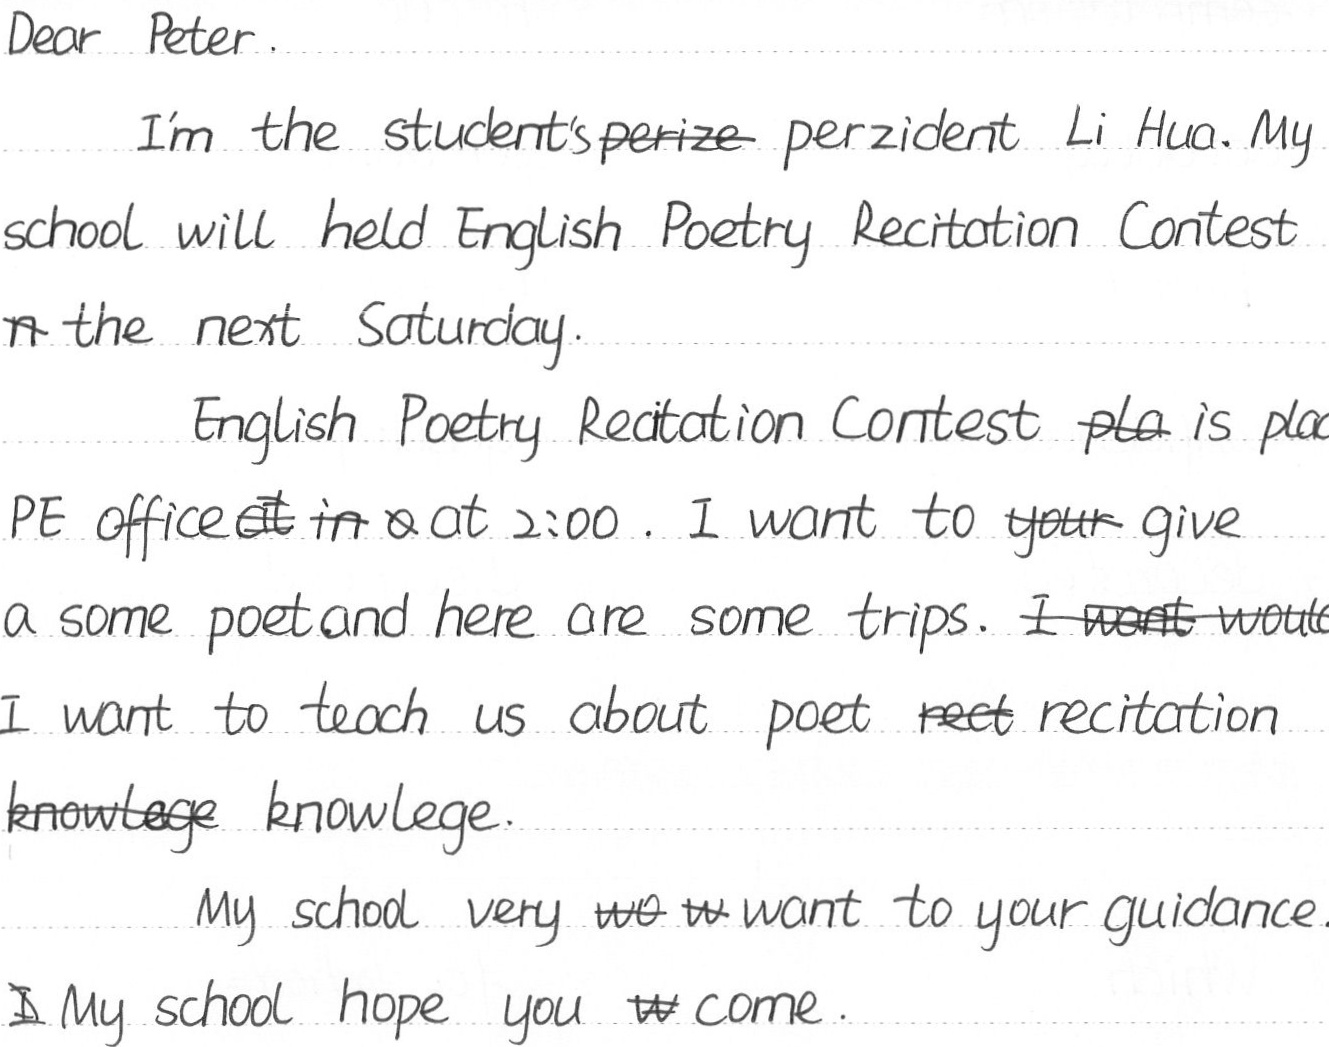 Dear Peter.
I'm the student's perize perzident Li Hua. My
school will held English Poetry Recitation Contest
the next Saturday.
English Poetry Recitation Contest pla is plac
PE office at in at 2:00. I want to your give
a some poet and here are some trips. I want would
I want to teach us about poet rect recitation
knowlege knowlege.
My school very wo w want to your guidance.
I My school hope you w come.